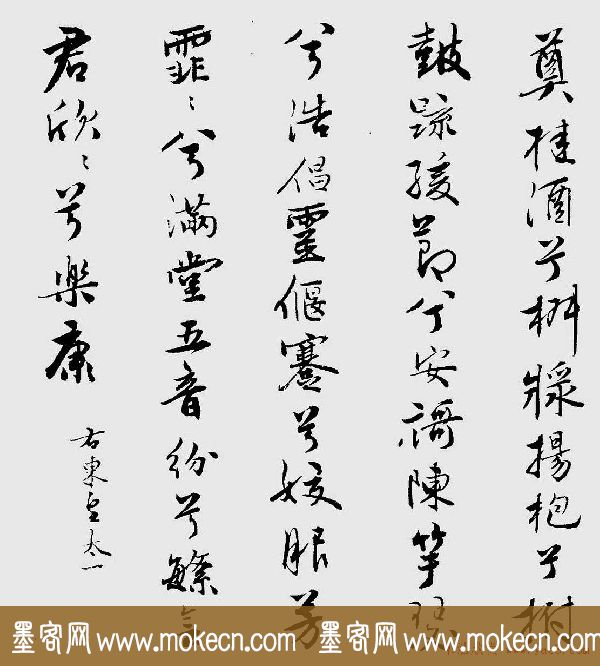 奠桂酒兮椒漿揚枹兮拊
鼓疏緩節兮安歌陳竽瑟
兮浩倡靈偃蹇兮姣服芳
霏〻兮滿堂五音紛兮繁
君欣〻兮樂康
右東皇太一
墨客网 www.mokecn.com 墨客网 www.mokecn.com 墨客网 www.mokecn.com